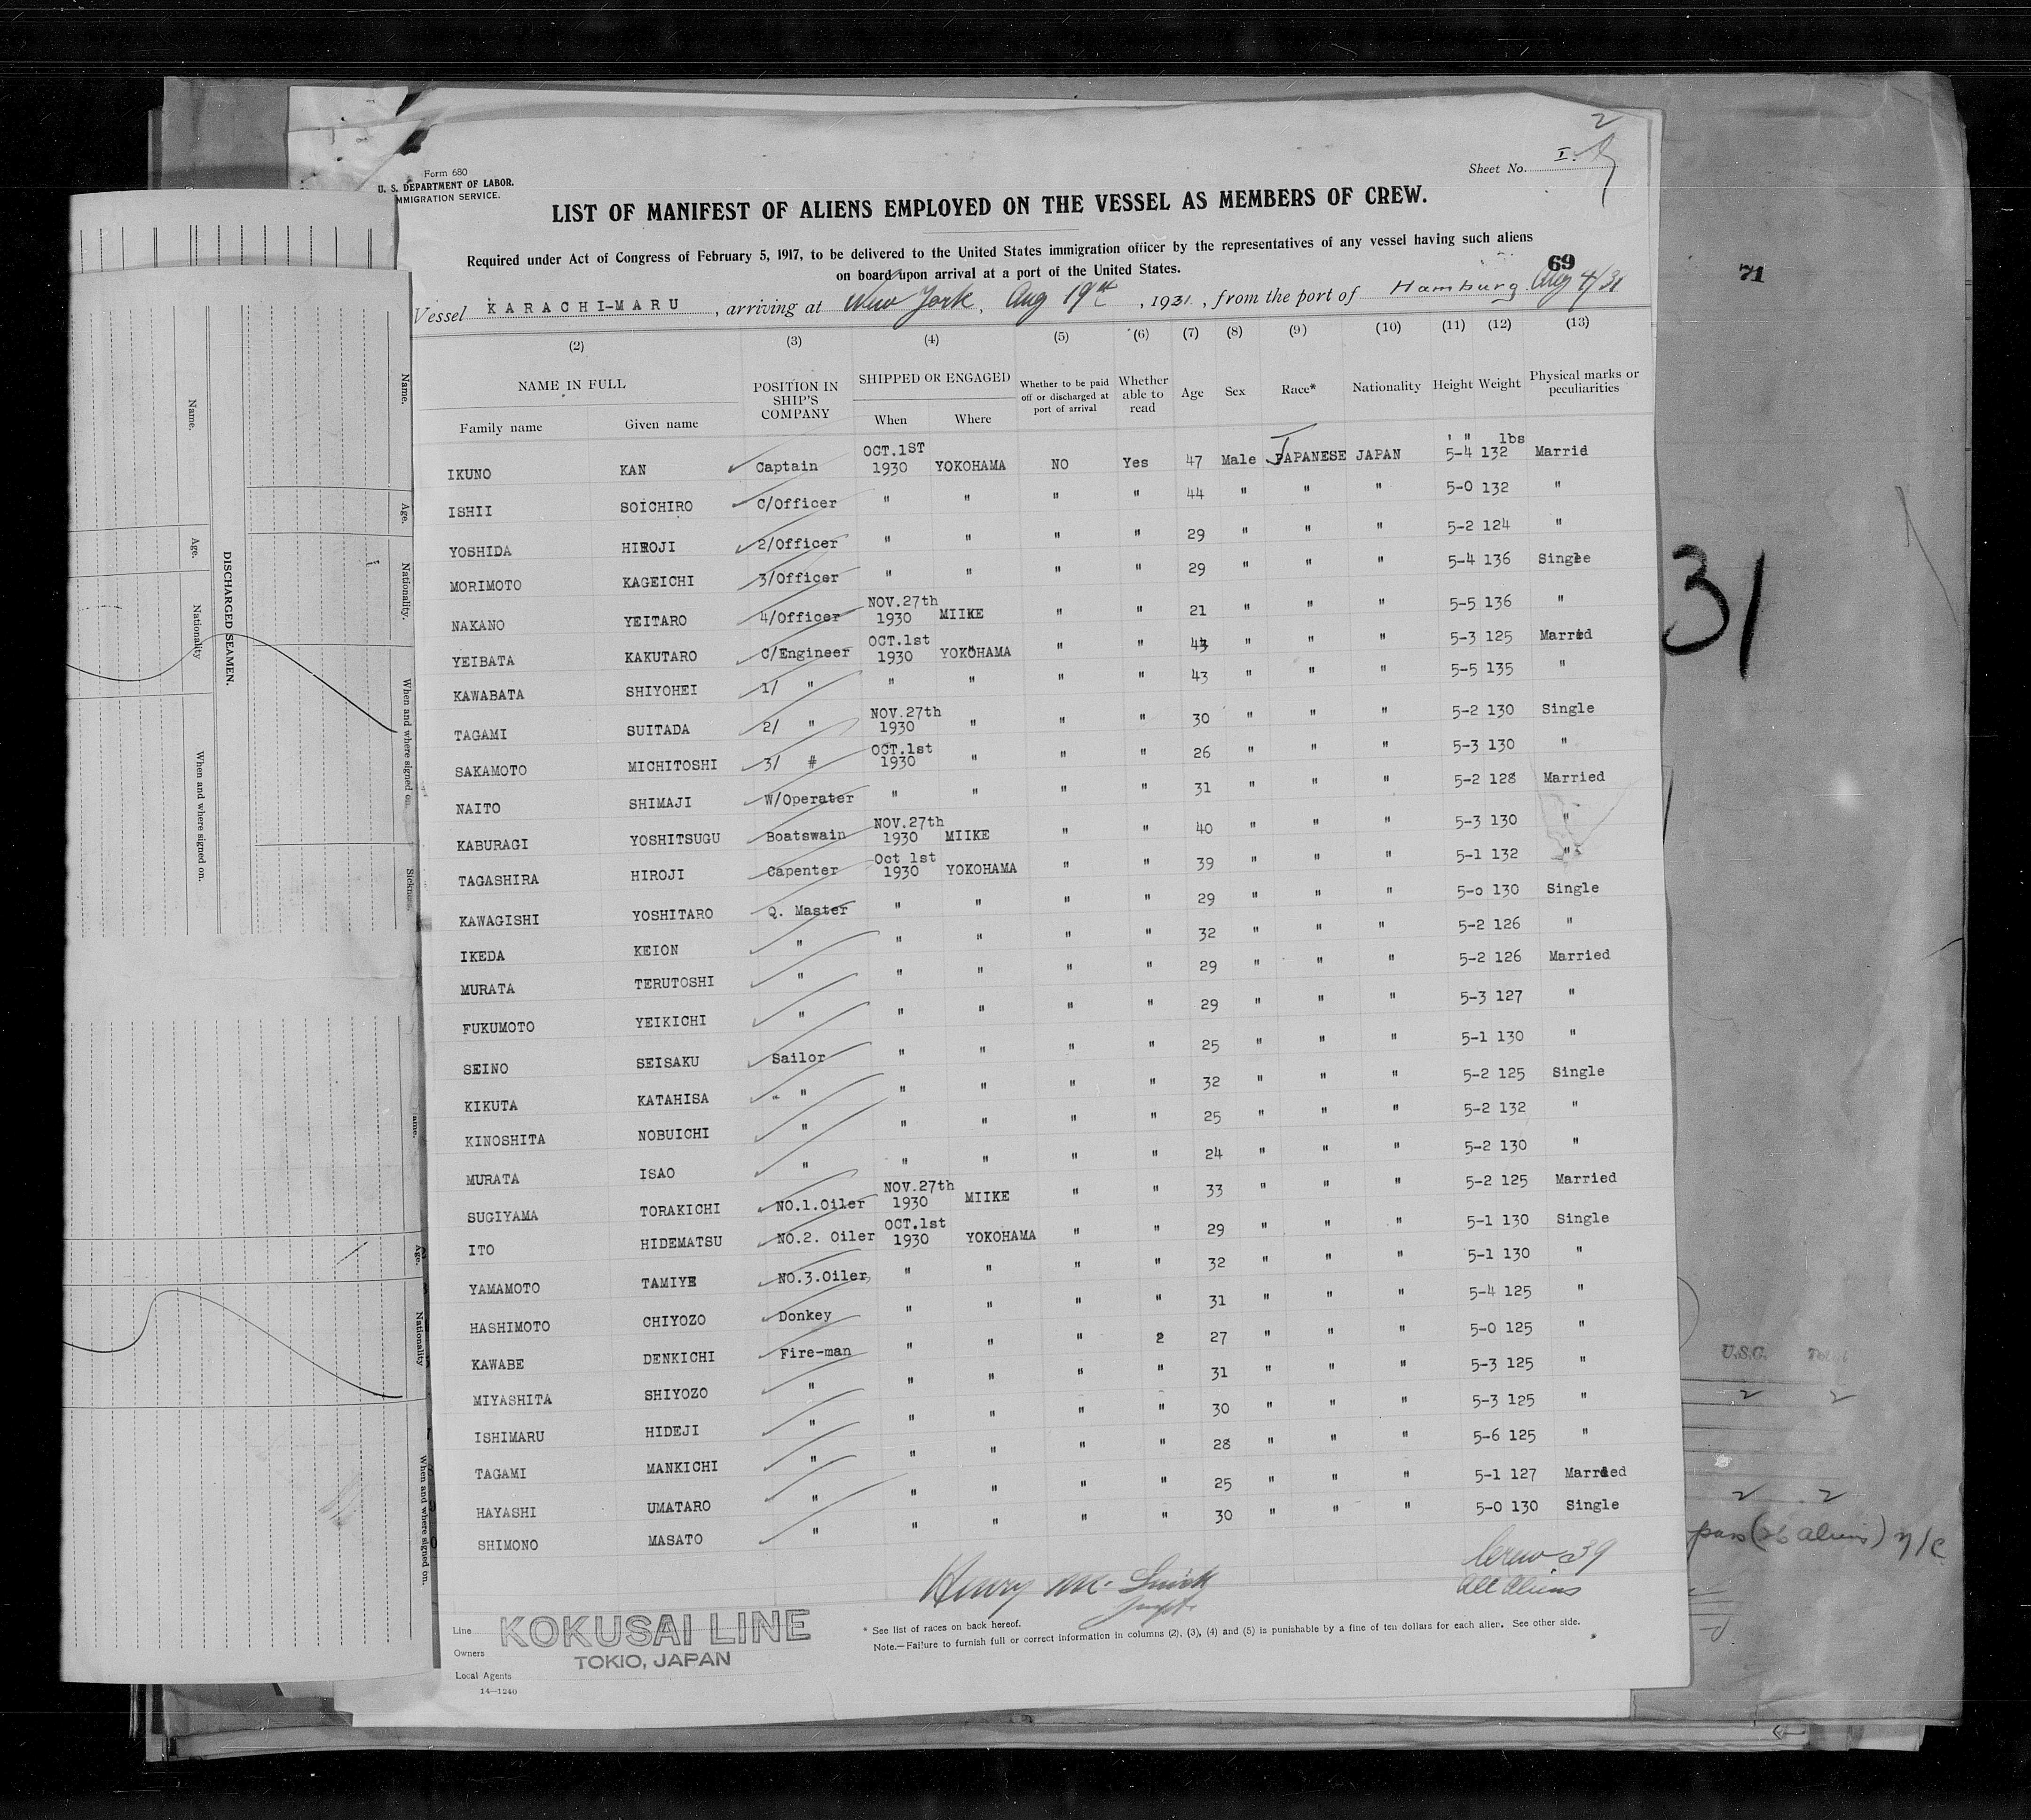 2
Form 680
U. S. DEPARTMENT OF LABOR.
IMMIGRATION SERVICE.
Sheet No. I.
LIST OF MANIFEST OF ALIENS EMPLOYED ON THE VESSEL AS MEMBERS OF CREW.
Required under Act of Congress of February 5, 1917, to be delivered to the United States immigration officer by the representatives of any vessel having such aliens
on board upon arrival at a port of the United States.
69
71
Vessel KARACHI-MARU, arriving at New York, Aug 19th, 1931, from the port of Hamburg Aug 4/31
(2) (3) (4) (5) (6) (7) (8) (9) (10) (11) (12) (13)
NAME IN FULL POSITION IN SHIP'S COMPANY SHIPPED OR ENGAGED Whether to be paid off or discharged at port of arrival Whether able to read Age Sex Race* Nationality Height Weight Physical marks or peculiarities
Family name Given name When Where
' " lbs
IKUNO KAN Captain OCT.1ST 1930 YOKOHAMA NO Yes 47 Male JAPANESE JAPAN 5-4 132 Marrid
ISHII SOICHIRO C/Officer " " " " 44 " " " 5-0 132 "
YOSHIDA HIROJI 2/Officer " " " " 29 " " " 5-2 124 "
MORIMOTO KAGEICHI 3/Officer " " " " 29 " " " 5-4 136 Single
NAKANO YEITARO 4/Officer NOV.27th 1930 MIIKE " " 21 " " " 5-5 136 "
YEIBATA KAKUTARO C/Engineer OCT.1st 1930 YOKOHAMA " " 43 " " " 5-3 125 Married
KAWABATA SHIYOHEI 1/ " " " " " 43 " " " 5-5 135 "
TAGAMI SUITADA 2/ " NOV.27th 1930 " " " 30 " " " 5-2 130 Single
SAKAMOTO MICHITOSHI 3/ # OCT.1st 1930 " " " 26 " " " 5-3 130 "
NAITO SHIMAJI W/Operater " " " " 31 " " " 5-2 128 Married
KABURAGI YOSHITSUGU Boatswain NOV.27th 1930 MIIKE " " 40 " " " 5-3 130 "
TAGASHIRA HIROJI Capenter Oct 1st 1930 YOKOHAMA " " 39 " " " 5-1 132 "
KAWAGISHI YOSHITARO Q. Master " " " " 29 " " " 5-o 130 Single
IKEDA KEION " " " " " 32 " " " 5-2 126 "
MURATA TERUTOSHI " " " " " 29 " " " 5-2 126 Married
FUKUMOTO YEIKICHI " " " " " 29 " " " 5-3 127 "
SEINO SEISAKU Sailor " " " " 25 " " " 5-1 130 "
KIKUTA KATAHISA " " " " " " 32 " " " 5-2 125 Single
KINOSHITA NOBUICHI " " " " " 25 " " " 5-2 132 "
MURATA ISAO " " " " " 24 " " " 5-2 130 "
SUGIYAMA TORAKICHI NO.1.Oiler NOV.27th 1930 MIIKE " " 33 " " " 5-2 125 Married
ITO HIDEMATSU NO.2. Oiler OCT.1st 1930 YOKOHAMA " " 29 " " " 5-1 130 Single
YAMAMOTO TAMIYE NO.3.Oiler " " " " 32 " " " 5-1 130 "
HASHIMOTO CHIYOZO Donkey " " " " 31 " " " 5-4 125 "
KAWABE DENKICHI Fire-man " " " 2 27 " " " 5-0 125 "
MIYASHITA SHIYOZO " " " " " 31 " " " 5-3 125 "
ISHIMARU HIDEJI " " " " " 30 " " " 5-3 125 "
TAGAMI MANKICHI " " " " " 28 " " " 5-6 125 "
HAYASHI UMATARO " " " " " 25 " " " 5-1 127 Married
SHIMONO MASATO " " " " " 30 " " " 5-0 130 Single
Henry M. Smith
Crew 39
all aliens
Line
Owners
Local Agents
14—1240
KOKUSAI LINE
TOKIO, JAPAN
* See list of races on back hereof.
Note.—Failure to furnish full or correct information in columns (2), (3), (4) and (5) is punishable by a fine of ten dollars for each alien. See other side.
Name.
Age.
Nationality
When and where signed on.
DISCHARGED SEAMEN.
Name.
Age.
Nationality.
When and where signed on.
Sickness.
Age.
Nationality
When and where signed on.
31
U.S.C. Total
2 2
2 2
pass (26 aliens)